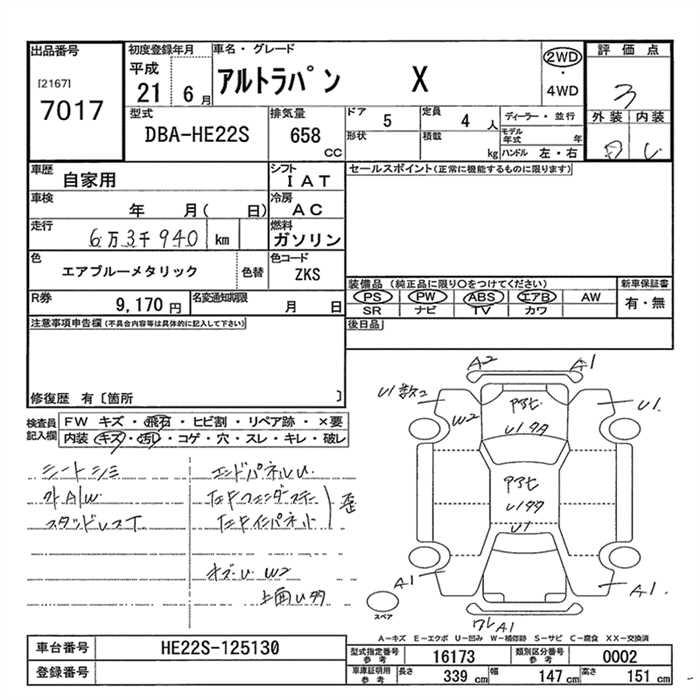 出品番号
[2167]
7017
初度登録年月
平成
21 6月
車名・グレード
アルトラパン X
2WD
・
4WD
評価点
3
外装 内装
型式
DBA-HE22S
排気量
658
CC
ドア 5
定員 4 人
形状
積載
kg
ディーラー・並行
モデル年式 年
ハンドル 左・右
車歴
自家用
シフト
IAT
車検
年 月( 日)
冷房
AC
走行
6万3千940 km
燃料
ガソリン
色
エアブルーメタリック
色替
色コード
ZKS
R券
9,170円
名変通知期限
月 日
セールスポイント(正常に機能するものに限ります)
装備品(純正品に限り○をつけてください)
PS PW ABS エアB AW
SR ナビ TV カワ
新車保証書
有・無
後日品
注意事項申告欄(不具合内容等は具体的に記入して下さい)
修復歴 有〔箇所 〕
検査員
記入欄
FW キズ・飛石・ヒビ割・リペア跡・×要
内装 キズ・汚レ・コゲ・穴・スレ・キレ・破レ
シートシミ
外A/W
スタッドレスT
エンドパネルU
歪
上面U多
A2
A1
U1数コ
W2
U1
U1多々
U1多々
U1
A1
A1
スペア
ワレA1
A-キズ E-エクボ U-凹み W-補修跡 S-サビ C-腐食 XX-交換済
車台番号
HE22S-125130
登録番号
型式指定番号
参考
16173
類別区分番号
参考
0002
車庫証明用
参考
長さ 339 cm
幅 147 cm
高さ 151 cm